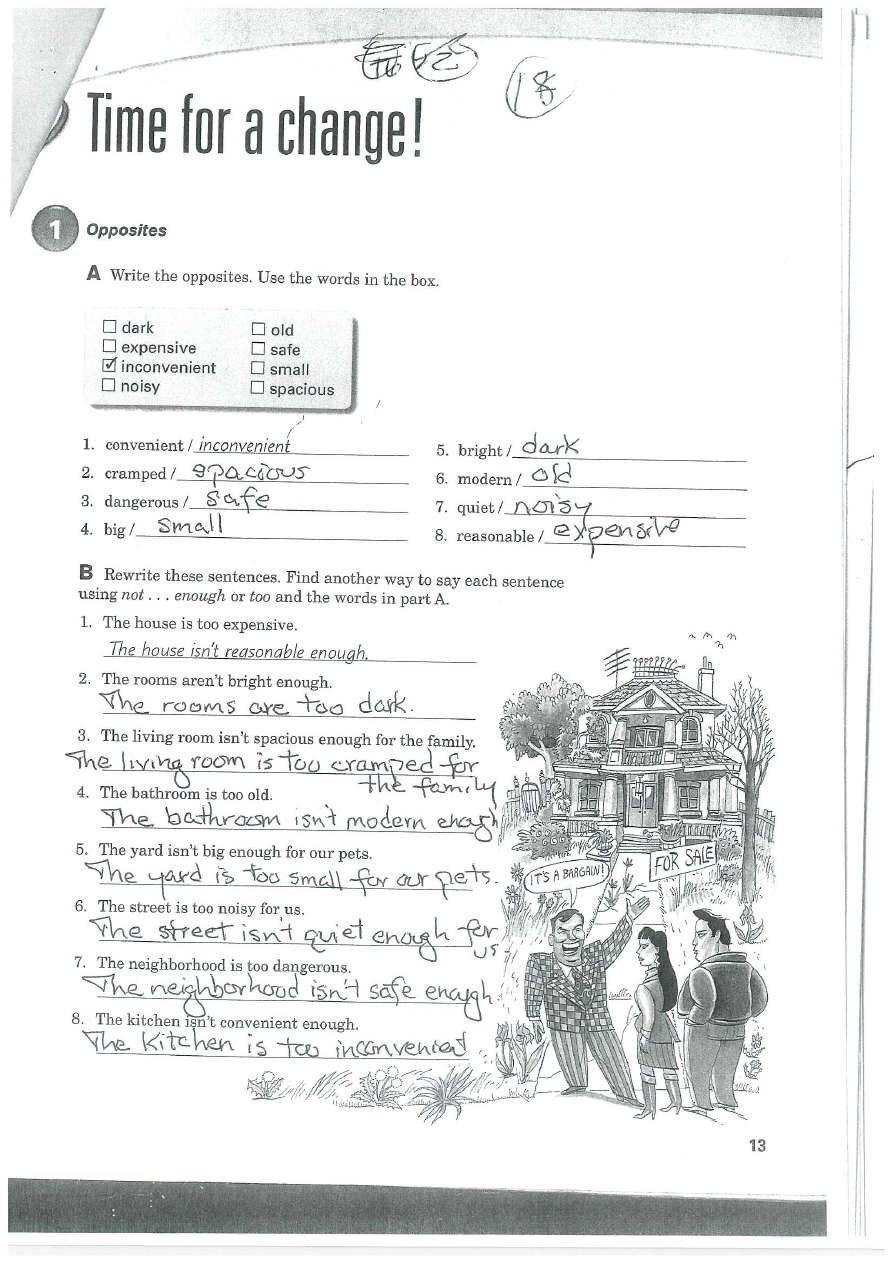 18
Time for a change!
1 Opposites
A Write the opposites. Use the words in the box.
☐ dark ☐ old
☐ expensive ☐ safe
☑ inconvenient ☐ small
☐ noisy ☐ spacious
1. convenient / inconvenient
2. cramped / spacious
3. dangerous / safe
4. big / small
5. bright / dark
6. modern / old
7. quiet / noisy
8. reasonable / expensive
B Rewrite these sentences. Find another way to say each sentence
using not . . . enough or too and the words in part A.
1. The house is too expensive.
The house isn't reasonable enough.
2. The rooms aren't bright enough.
The rooms are too dark.
3. The living room isn't spacious enough for the family.
The living room is too cramped for
the family
4. The bathroom is too old.
The bathroom isn't modern enough
5. The yard isn't big enough for our pets.
The yard is too small for our pets.
6. The street is too noisy for us.
The street isn't quiet enough for
us
7. The neighborhood is too dangerous.
The neighborhood isn't safe enough
8. The kitchen isn't convenient enough.
The kitchen is too inconvenient
IT'S A BARGAIN!
FOR SALE
13